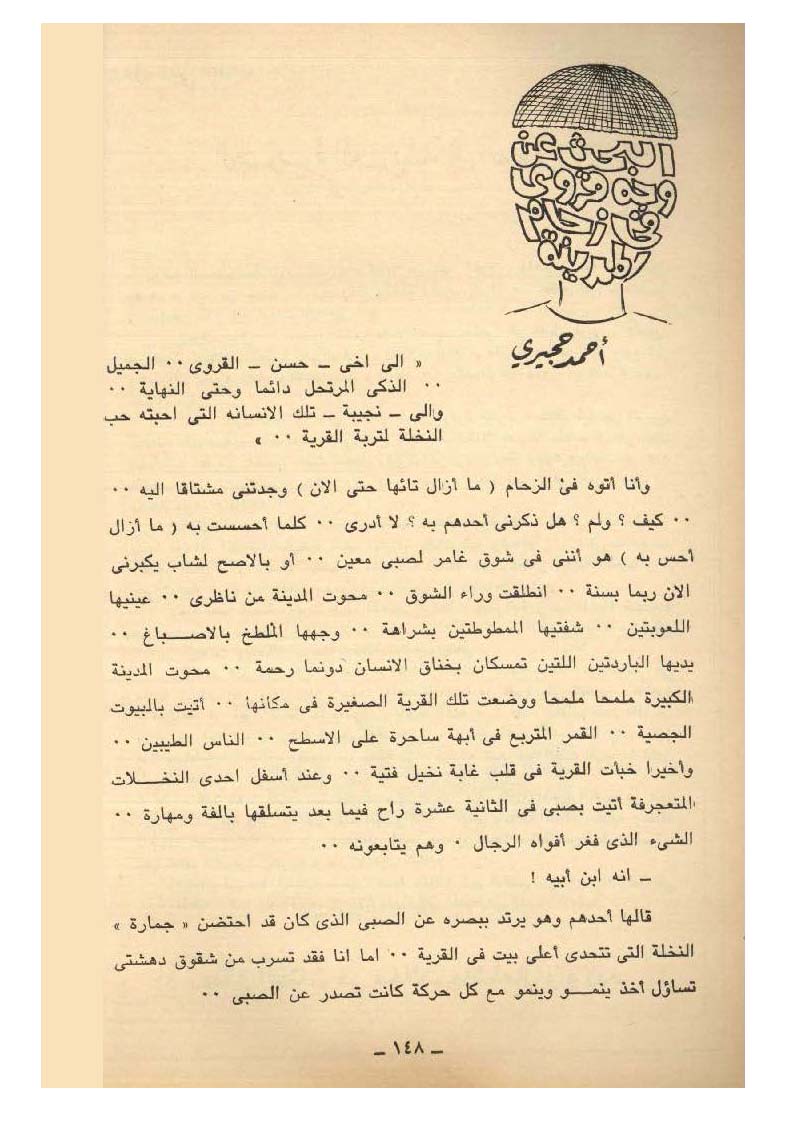 البحث عن
وجه قروى
فى زحام
المدينة
أحمد حجيري
« الى اخى ــ حسن ــ القروى ٠٠ الجميل
٠٠ الذكى المرتحل دائما وحتى النهاية ٠٠
والى ــ نجيبة ــ تلك الانسانه التى احبته حب
النخلة لتربة القرية ٠٠ »
وأنا أتوه فى الزحام ( ما أزال تائها حتى الان ) وجدتنى مشتاقا اليه ٠٠
٠٠ كيف ؟ ولم ؟ هل ذكرنى أحدهم به ؟ لا أدرى ٠٠ كلما أحسست به ( ما أزال
أحس به ) هو أننى فى شوق غامر لصبى معين ٠٠ أو بالاصح لشاب يكبرنى
الان ربما بسنة ٠٠ انطلقت وراء الشوق ٠٠ محوت المدينة من ناظرى ٠٠ عينيها
اللعوبتين ٠٠ شفتيها الممطوطتين بشراهة ٠٠ وجهها الملطخ بالاصــباغ ٠٠
يديها الباردتين اللتين تمسكان بخناق الانسان دونما رحمة ٠٠ محوت المدينة
الكبيرة ملمحا ملمحا ووضعت تلك القرية الصغيرة فى مكانها ٠٠ أتيت بالبيوت
الجصية ٠٠ القمر المتربع فى أبهة ساحرة على الاسطح ٠٠ الناس الطيبين ٠٠
وأخيرا خبأت القرية فى قلب غابة نخيل فتية ٠٠ وعند أسفل احدى النخــلات
المتعجرفة أتيت بصبى فى الثانية عشرة راح فيما بعد يتسلقها بالفة ومهارة ٠٠
الشىء الذى فغر أفواه الرجال ٠ وهم يتابعونه ٠٠
ــ انه ابن أبيه !
قالها أحدهم وهو يرتد ببصره عن الصبى الذى كان قد احتضن « جمارة »
النخلة التى تتحدى أعلى بيت فى القرية ٠٠ اما انا فقد تسرب من شقوق دهشتى
تساؤل أخذ ينمــو وينمو مع كل حركة كانت تصدر عن الصبى ٠٠
ــ ١٤٨ ــ